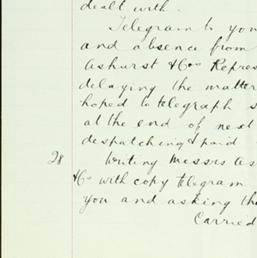 dealt with.
Telegram to you
and absence from
Ashurst & Cos Repres
delaying the matter
hoped to telegraph s
at the end of next
despatching & paid
28 Writing Messrs As
& Co with copy telegram
you and asking the
Carried